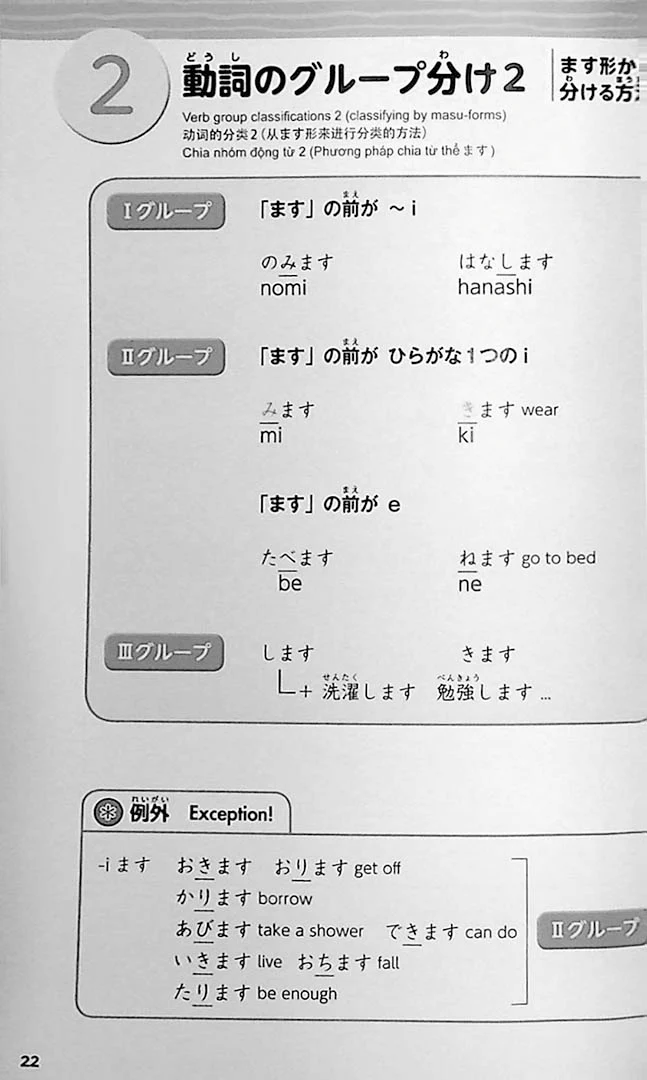 2
動詞のグループ分け2
どうし
わ
ます形か
分ける方
わ
Verb group classifications 2 (classifying by masu-forms)
动词的分类2(从ます形来进行分类的方法)
Chia nhóm động từ 2 (Phương pháp chia từ thể ます)
Ⅰグループ 「ます」の前が ～i
まえ
のみます はなします
nomi hanashi
Ⅱグループ 「ます」の前が ひらがな1つのi
まえ
みます きます wear
mi ki
「ます」の前が e
まえ
たべます ねます go to bed
be ne
Ⅲグループ します きます
+ 洗濯します 勉強します ...
せんたく べんきょう
例外 Exception!
れいがい
-iます おきます おります get off
かります borrow
あびます take a shower できます can do
Ⅱグループ
いきます live おちます fall
たります be enough
22